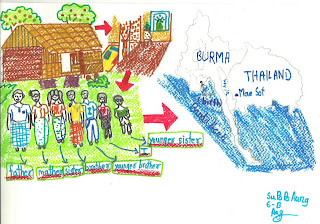 BURMA
THAILAND
Mae Sot
younger sister
I
father mother sister brother younger brother
Su B B Aung
6-B